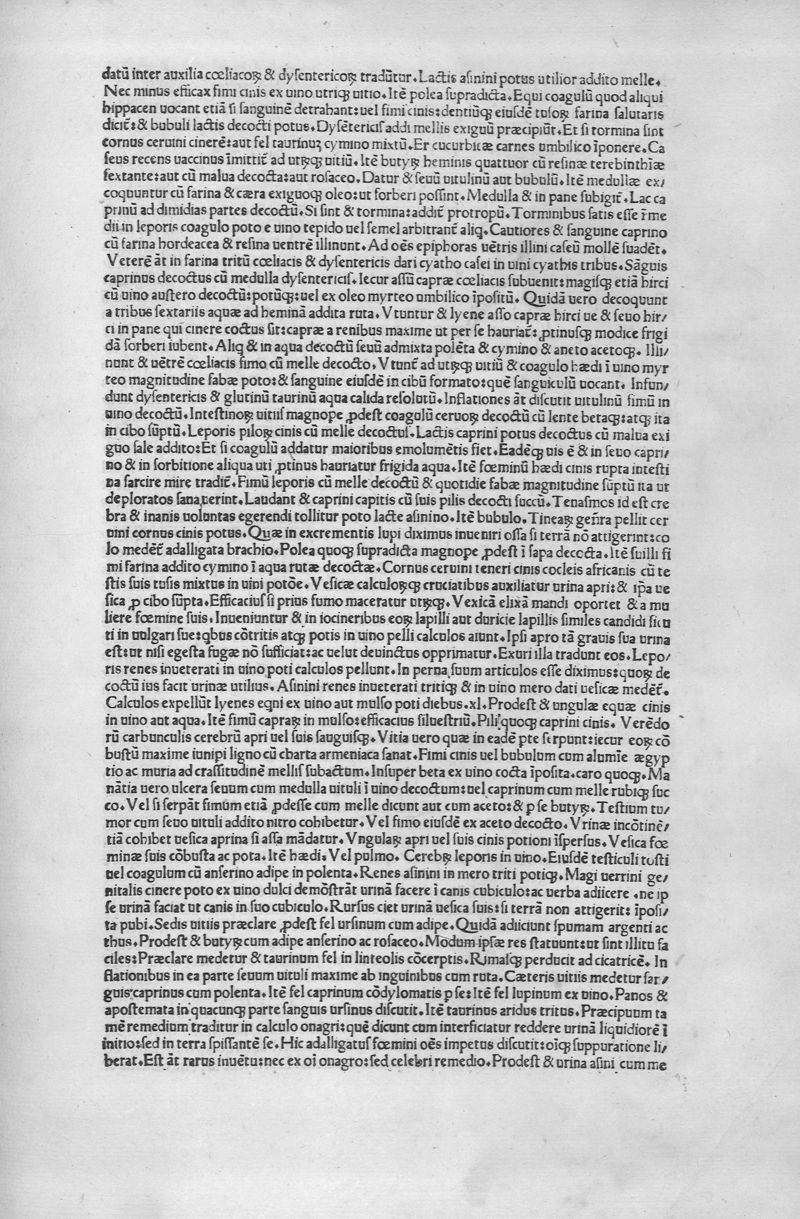 datũ inter auxilia cœliacoꝝ & dysentericoꝝ tradũtur. Lactis asinini potus utilior addito melle.
Nec minus efficax fimi cinis ex uino utriqꝫ uitio. Itẽ polea supradicta. Equi coagulũ quod aliqui
hippacen uocant etiã si sanguinẽ detrahant: uel fimi cinis: dentiũqꝫ eiusdẽ tusoꝝ farina salutaris
dicit᷑: & bubuli lactis decocti potus. Dysẽtericis addi mellis exiguũ præcipiũt. Et si tormina sint
cornus ceruini cinerẽ: aut fel taurinuꝫ cymino mixtũ. Er cucurbitæ carnes umbilico ĩponere. Ca
seus recens uaccinus ĩmittit᷑ ad utrũqꝫ uitiũ. Itẽ butyꝝ heminis quattuor cũ resinæ terebinthĩæ
sextante: aut cũ malua decocta: aut rosaceo. Datur & seuũ uitulinũ aut bubulũ. Itẽ medullæ ex/
coquuntur cũ farina & cæra exiguoqꝫ oleo: ut sorberi possint. Medulla & in pane subigit᷑. Lac ca
prinũ ad dimidias partes decoctũ. Si sint & tormina: addit᷑ protropũ. Torminibus satis esse ĩ me
dii in leporis coagulo poto e uino tepido uel semel arbitrant᷑ aliq̃. Cautiores & sanguine caprino
cũ farina hordeacea & resina uentrẽ illinunt. Ad oẽs epiphoras uẽtris illini caseũ mollẽ suadẽt.
Veterẽ ãt in farina tritũ cœliacis & dysentericis dari cyatho casei in uini cyathis tribus. Sãguis
caprinus decoctus cũ medulla dysentericis. Iecur assũ capræ cœliacis subuenit: magisqꝫ etiã hirci
cũ uino austero decoctũ: potũqꝫ: uel ex oleo myrteo umbilico ĩpositũ. Quidã uero decoquunt
a tribus sextariis aquæ ad heminã addita ruta. Vtuntur & lyene asso capræ hirci ue & seuo hir/
ci in pane qui cinere coctus sit: capræ a renibus maxime ut per se hauriat᷑: ꝓtinusqꝫ modice frigi
dã sorberi iubent. Aliq̃ & in aqua decoctũ seuũ admixta polẽta & cymino & aneto acetoqꝫ. Illi/
nunt & uẽtrẽ cœliacis fimo cũ melle decocto. Vtunt᷑ ad utrũqꝫ uitiũ & coagulo hædi ĩ uino myr
teo magnitudine fabæ poto: & sanguine eiusdẽ in cibũ formato: quẽ sanguiculũ uocant. Infun/
dunt dysentericis & glutinũ taurinũ aqua calida resolutũ. Inflationes ãt discutit uitulinũ fimũ in
uino decoctũ. Intestinoꝝ uitiis magnope ꝓdest coagulũ ceruoꝝ decoctũ cũ lente betaqꝫ: atqꝫ ita
in cibo sũptũ. Leporis piloꝝ cinis cũ melle decoctus. Lactis caprini potus decoctus cũ malua exi
guo sale addito: Et si coagulũ addatur maioribus emolumẽtis fiet. Eadẽqꝫ uis ẽ & in seuo capri/
no & in sorbitione aliqua uti ꝓtinus hauriatur frigida aqua. Itẽ fœminũ hædi cinis rupta intesti
na sarcire mire tradit᷑. Fimũ leporis cũ melle decoctũ & quotidie fabæ magnitudine sũptũ ita ut
deploratos sanauerint. Laudant & caprini capitis cũ suis pilis decocti succũ. Tenasmos id est cre
bra & inanis uoluntas egerendi tollitur poto lacte asinino. Itẽ bubulo. Tineaꝝ geñra pellit cer
uini cornus cinis potus. Quæ in excrementis lupi diximus inueniri ossa si terrã nõ attigerint: co
lo medet᷑ adalligata brachio. Polea quoqꝫ supradicta magnope ꝓdest ĩ sapa decocta. Itẽ suilli fi
mi farina addito cymino ĩ aqua rutæ decoctæ. Cornus ceruini teneri cinis cocleis africanis cũ te
stis suis tusis mixtus in uini potõe. Vesicæ calculoꝝqꝫ cruciatibus auxiliatur urina apri: & ip̃a ue
sica ꝓ cibo sũpta. Efficacius si prius fumo maceratur utrũqꝫ. Vexicã elixã mandi oportet & a mu
liere fœmine suis. Inueniuntur & in iocineribus eoꝝ lapilli aut duricie lapillis similes candidi sicu
ti in uulgari sue: q̃bus cõtritis atqꝫ potis in uino pelli calculos aiunt. Ipsi apro tã grauis sua urina
est: ut nisi egesta fugæ nõ sufficiat: ac uelut deuinctus opprimatur. Exuri illa tradunt eos. Lepo/
ris renes inueterati in uino poti calculos pellunt. In perna suum articulos esse diximus: quoꝝ de
coctũ ius facit urinæ utilius. Asinini renes inueterati tritiqꝫ & in uino mero dati uesicæ medẽt᷑.
Calculos expellũt lyenes eqni ex uino aut mulso poti diebus. xl. Prodest & ungulæ equæ cinis
in uino aut aqua. Itẽ fimũ capraꝝ in mulso: efficacius siluestriũ. Pili quoqꝫ caprini cinis. Verẽdo
rũ carbunculis cerebrũ apri uel suis sanguisqꝫ. Vitia uero quæ in eadẽ pte serpunt: iecur eoꝝ cõ
bustũ maxime iunipi ligno cũ charta armeniaca sanat. Fimi cinis uel bubulum cum alumĩe ægyp
tio ac muria ad crassitudinẽ mellis subactum. Insuper beta ex uino cocta ĩposita. caro quoqꝫ. Ma
nãtia uero ulcera seuum cum medulla uituli ĩ uino decoctum: uel caprinum cum melle rubiqꝫ suc
co. Vel si serpãt fimum etiã ꝓdesse cum melle dicunt aut cum aceto: & ꝑ se butyꝝ. Testium tu/
mor cum seuo uituli addito nitro cohibetur. Vel fimo eiusdẽ ex aceto decocto. Vrinæ incõtinẽ/
tiã cohibet uesica aprina si assa mãdatur. Vngulaꝝ apri uel suis cinis potioni ĩspersus. Vesica fœ
minæ suis cõbusta ac pota. Itẽ hædi. Vel pulmo. Cerebꝝ leporis in uino. Eiusdẽ testiculi tosti
uel coagulum cũ anserino adipe in polenta. Renes asinini in mero triti potiqꝫ. Magi uerrini ge/
nitalis cinere poto ex uino dulci demõstrãt urinã facere ĩ canis cubiculo: ac uerba adiicere. ne ip
se urinã faciat ut canis in suo cubiculo. Rursus ciet urinã uesica suis: si terrã non attigerit: ĩposi/
ta pubi. Sedis uitiis præclare ꝓdest fel ursinum cum adipe. Quidã adiiciunt spumam argenti ac
thus. Prodest & butyꝝ cum adipe anserino ac rosaceo. Modum ipsæ res statuunt: ut sint illitu fa
ciles: Præclare medetur & taurinum fel in linteolis cõcerptis. Rimasqꝫ perducit ad cicatricẽ. In
flationibus in ea parte seuum uituli maxime ab inguinibus cum ruta. Cæteris uitiis medetur san/
guis caprinus cum polenta. Itẽ fel caprinum cõdylomatis ꝑ se: Itẽ fel lupinum ex uino. Panos &
apostemata in quacunqꝫ parte sanguis ursinus discutit. Itẽ taurinus aridus tritus. Præcipuum ta
mẽ remedium traditur in calculo onagri: quẽ dicunt cum interficiatur reddere urinã liquidiorẽ ĩ
initio: sed in terra spissantẽ se. Hic adalligatus fœmini oẽs impetus discutit: oĩqꝫ suppuratione li/
berat. Est ãt rarus inuẽtu: nec ex oĩ onagro: sed celebri remedio. Prodest & urina asini cum me